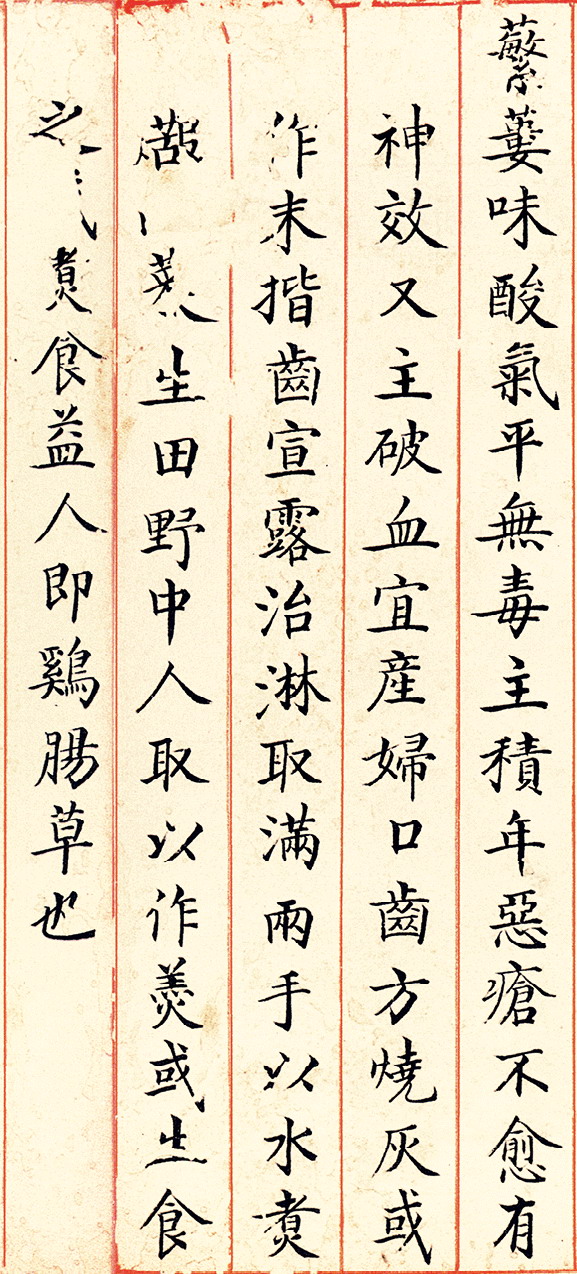 蘩蔞味酸氣平無毒主積年惡瘡不愈有
神效又主破血宜産婦口齒方燒灰或
作末揩齒宣露治淋取滿兩手以水煮
生田野中人取以作羹或生食
之煮食益人即鷄腸草也